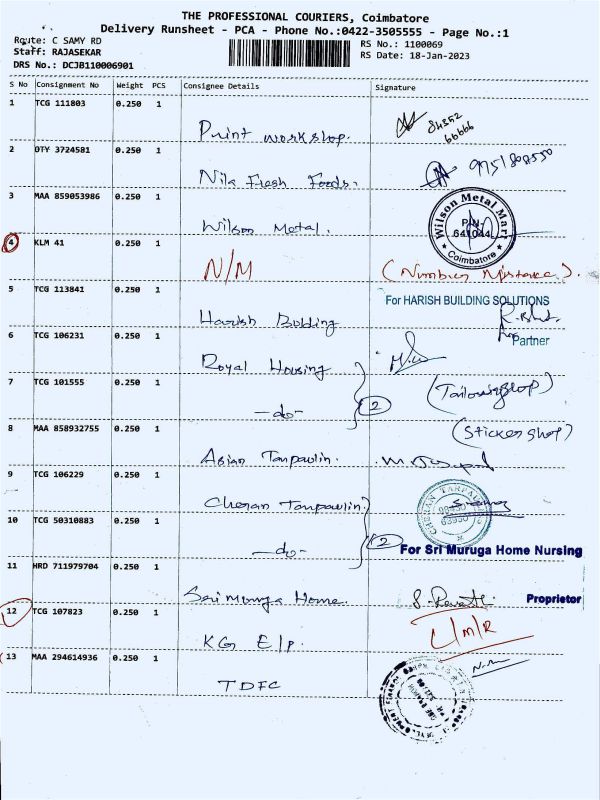 THE PROFESSIONAL COURIERS, Coimbatore
Delivery Runsheet - PCA - Phone No.:0422-3505555 - Page No.:1
Route: C SAMY RD
RS No.: 1100069
Staff: RAJASEKAR
RS Date: 18-Jan-2023
DRS No.: DCJB110006901
S No Consignment No Weight PCS Consignee Details Signature
1 TCG 111803 0.250 1
Print workshop.
84352
66666
2 DTY 3724581 0.250 1
Nila Fresh Foods.
9751808550
3 MAA 859053986 0.250 1
Wilson Metal.
Wilson Metal Mart
PIN
641044
Coimbatore
4 KLM 41 0.250 1
N/M
(Number Mistake).
5 TCG 113841 0.250 1
Harish Bulding
For HARISH BUILDING SOLUTIONS
Partner
6 TCG 106231 0.250 1
Royal Housing
7 TCG 101555 0.250 1
-do-
2
(Tailoringshop)
8 MAA 858932755 0.250 1
(Sticker shop)
Asian Tarpaulin.
9 TCG 106229 0.250 1
Cheran Tarpaulin
CHERAN TARPAULIN
10 TCG 50310883 0.250 1
-do-
2
For Sri Muruga Home Nursing
11 HRD 711979704 0.250 1
Sri Muruga Home.
Proprietor
12 TCG 107823 0.250 1
KG E/P.
L/M/R
13 MAA 294614936 0.250 1
TDFC